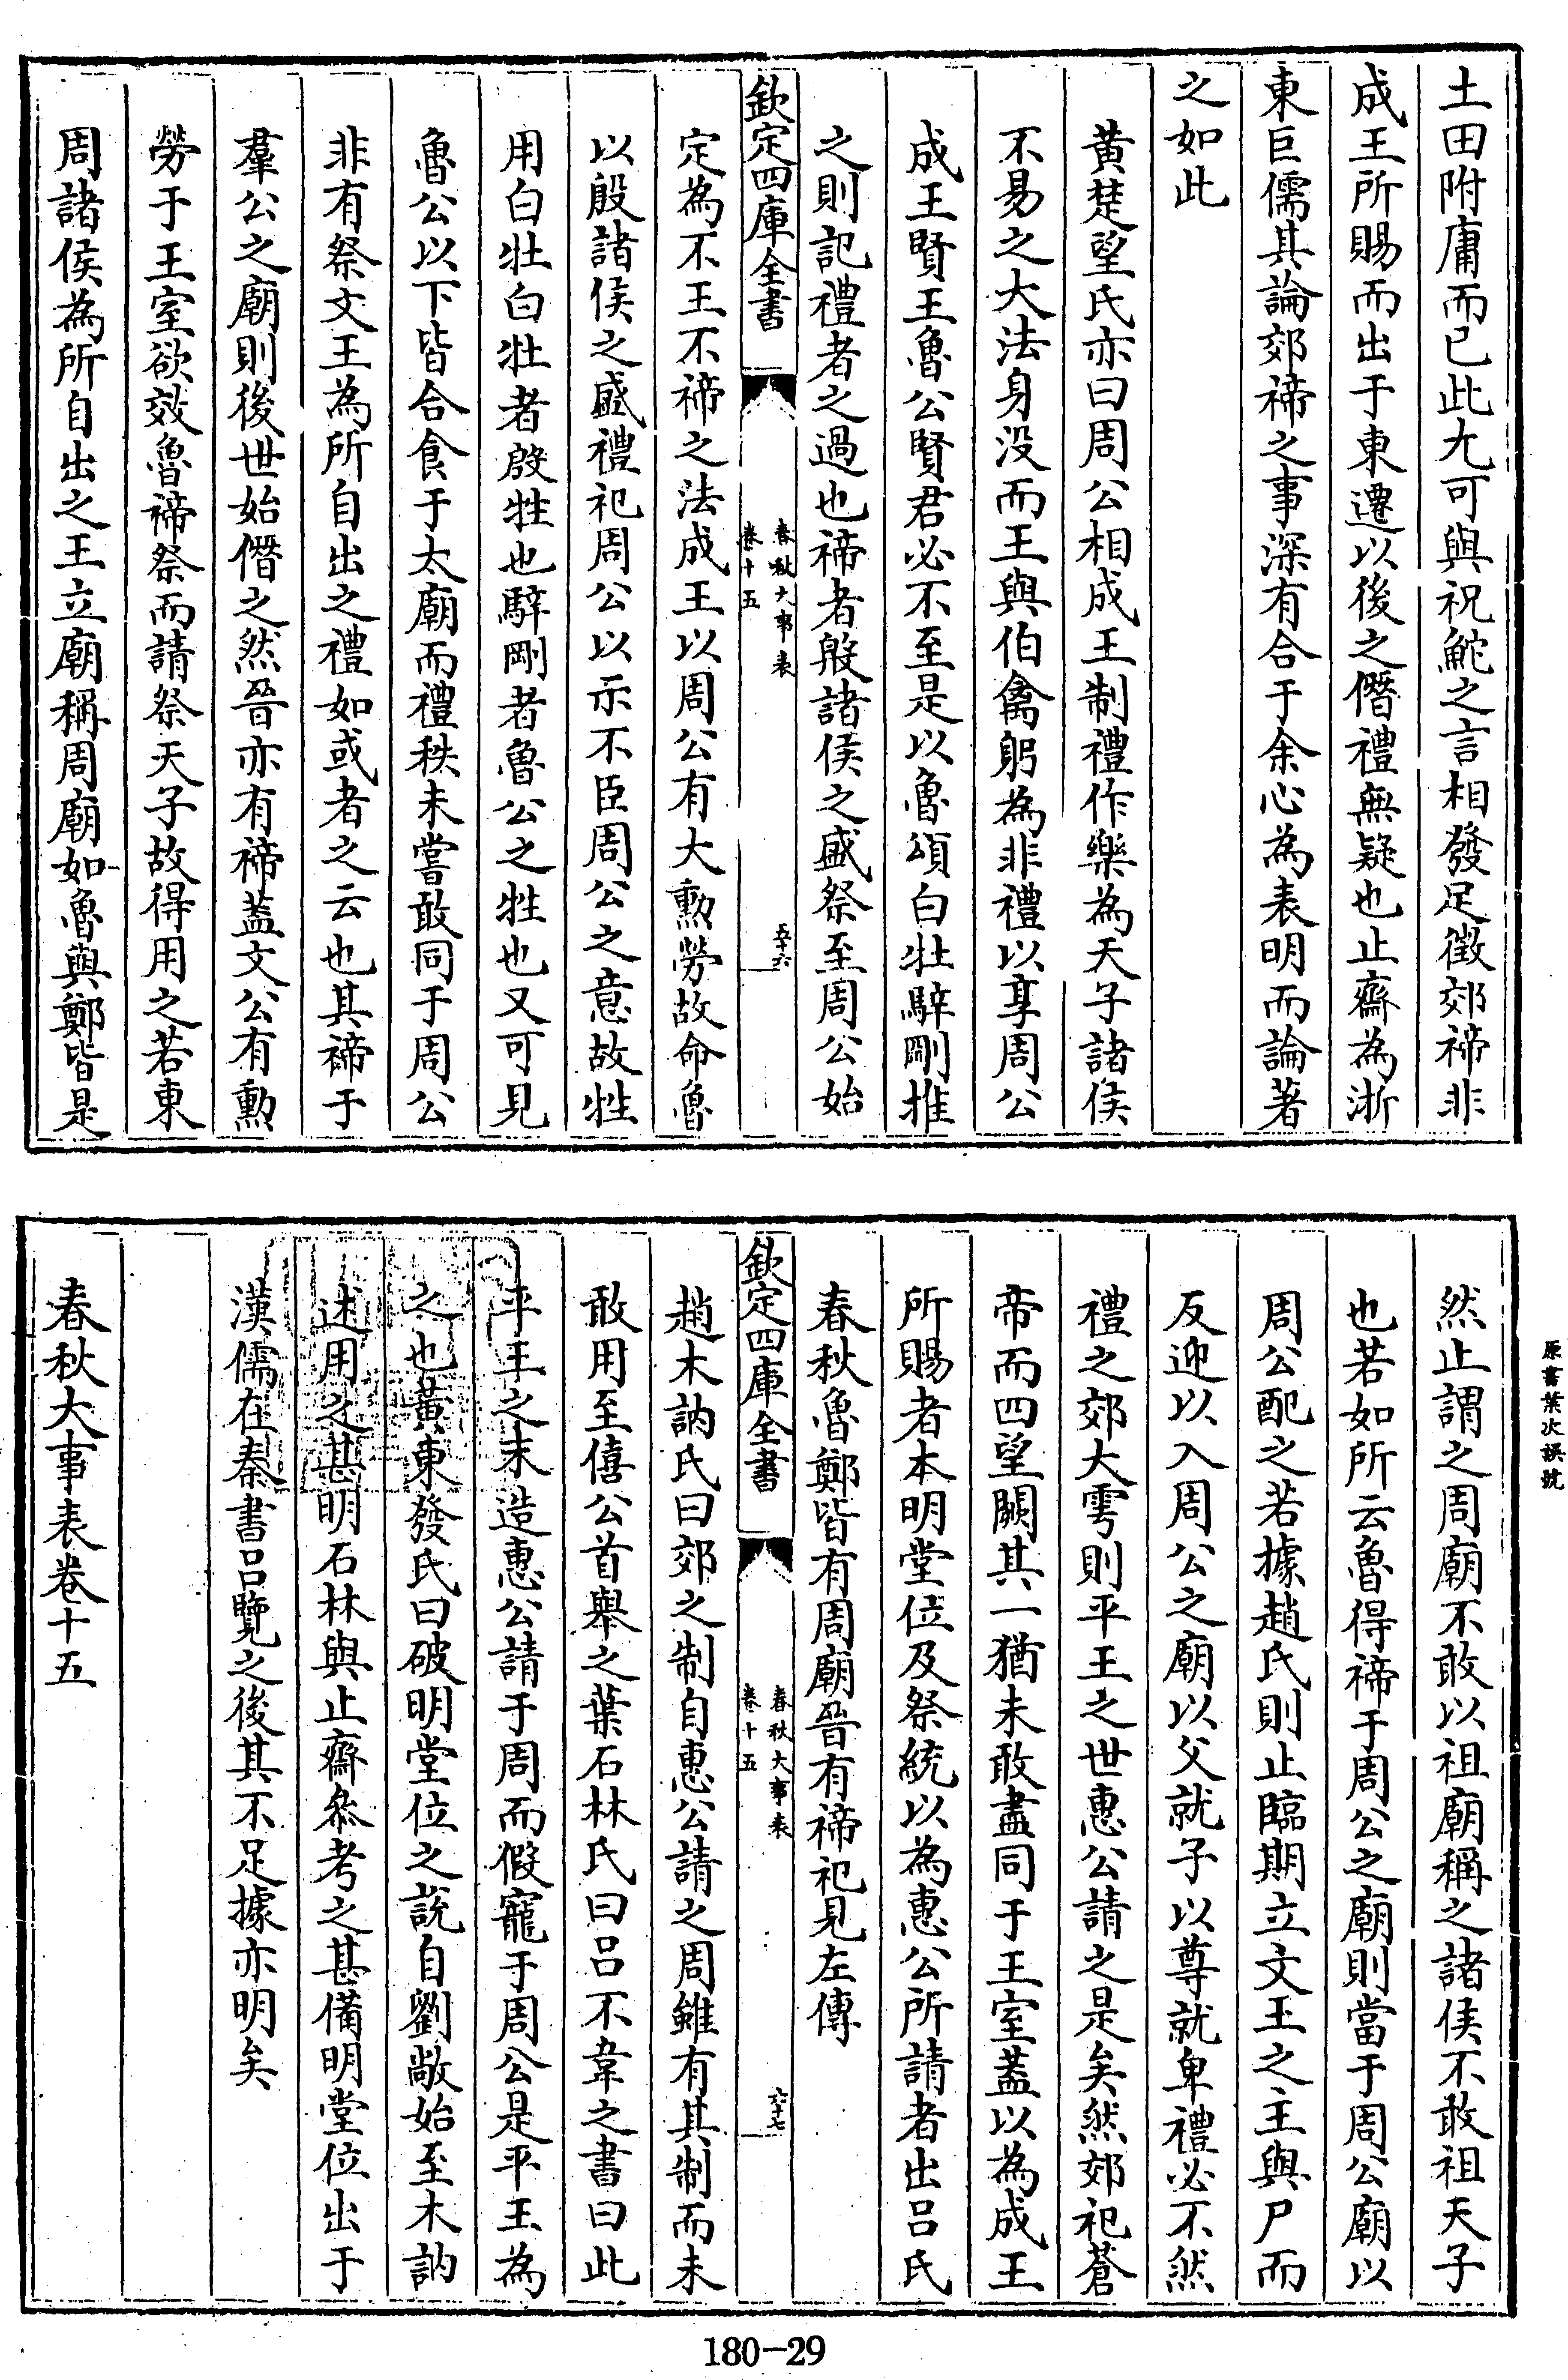 土田附庸而已此尤可與祝鮀之言相發足徵郊禘非
成王所賜而出于東遷以後之僭禮無疑也止齋為浙
東巨儒其論郊禘之事深有合于余心為表明而論著
之如此
黃楚望氏亦曰周公相成王制禮作樂為天子諸侯
不易之大法身没而王與伯禽躬為非禮以享周公
成王賢王魯公賢君必不至是以魯頌白牡騂剛推
之則記禮者之過也禘者殷諸侯之盛祭至周公始
欽定四庫全書
春秋大事表
卷十五
五十六
定為不王不禘之法成王以周公有大勲勞故命魯
以殷諸侯之盛禮祀周公以示不臣周公之意故牲
用白牡白牡者殷牲也騂剛者魯公之牲也又可見
魯公以下皆合食于太廟而禮秩未嘗敢同于周公
非有祭文王為所自出之禮如或者之云也其禘于
羣公之廟則後世始僭之然晉亦有禘蓋文公有勲
勞于王室欲效魯禘祭而請祭天子故得用之若東
周諸侯為所自出之王立廟稱周廟如魯與鄭皆是
然止謂之周廟不敢以祖廟稱之諸侯不敢祖天子
也若如所云魯得禘于周公之廟則當于周公廟以
周公配之若據趙氏則止臨期立文王之主與尸而
反迎以入周公之廟以父就子以尊就卑禮必不然
禮之郊大雩則平王之世惠公請之是矣然郊祀蒼
帝而四望闕其一猶未敢盡同于王室蓋以為成王
所賜者本明堂位及祭統以為惠公所請者出吕氏
春秋魯鄭皆有周廟晉有禘祀見左傳
欽定四庫全書
春秋大事表
卷十五
六十七
趙木訥氏曰郊之制自惠公請之周雖有其制而未
敢用至僖公首舉之葉石林氏曰吕不韋之書曰此
平王之末造惠公請于周而假寵于周公是平王為
之也黃東發氏曰破明堂位之說自劉敞始至木訥
述用之甚明石林與止齋叅考之甚備明堂位出于
漢儒在秦書吕覽之後其不足據亦明矣
春秋大事表卷十五
原書葉次誤號
180-29